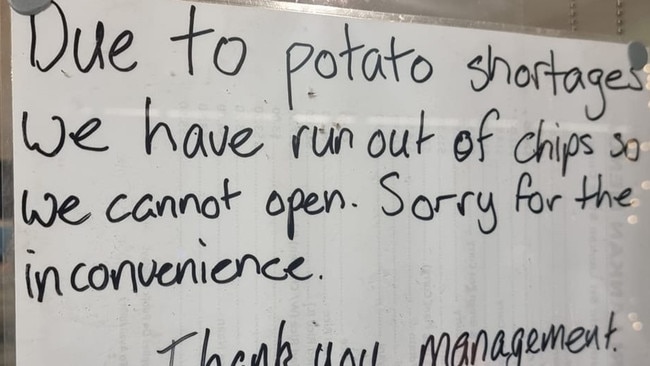 Due to potato shortages
we have run out of chips so
we cannot open. Sorry for the
inconvenience.
Thank you management.